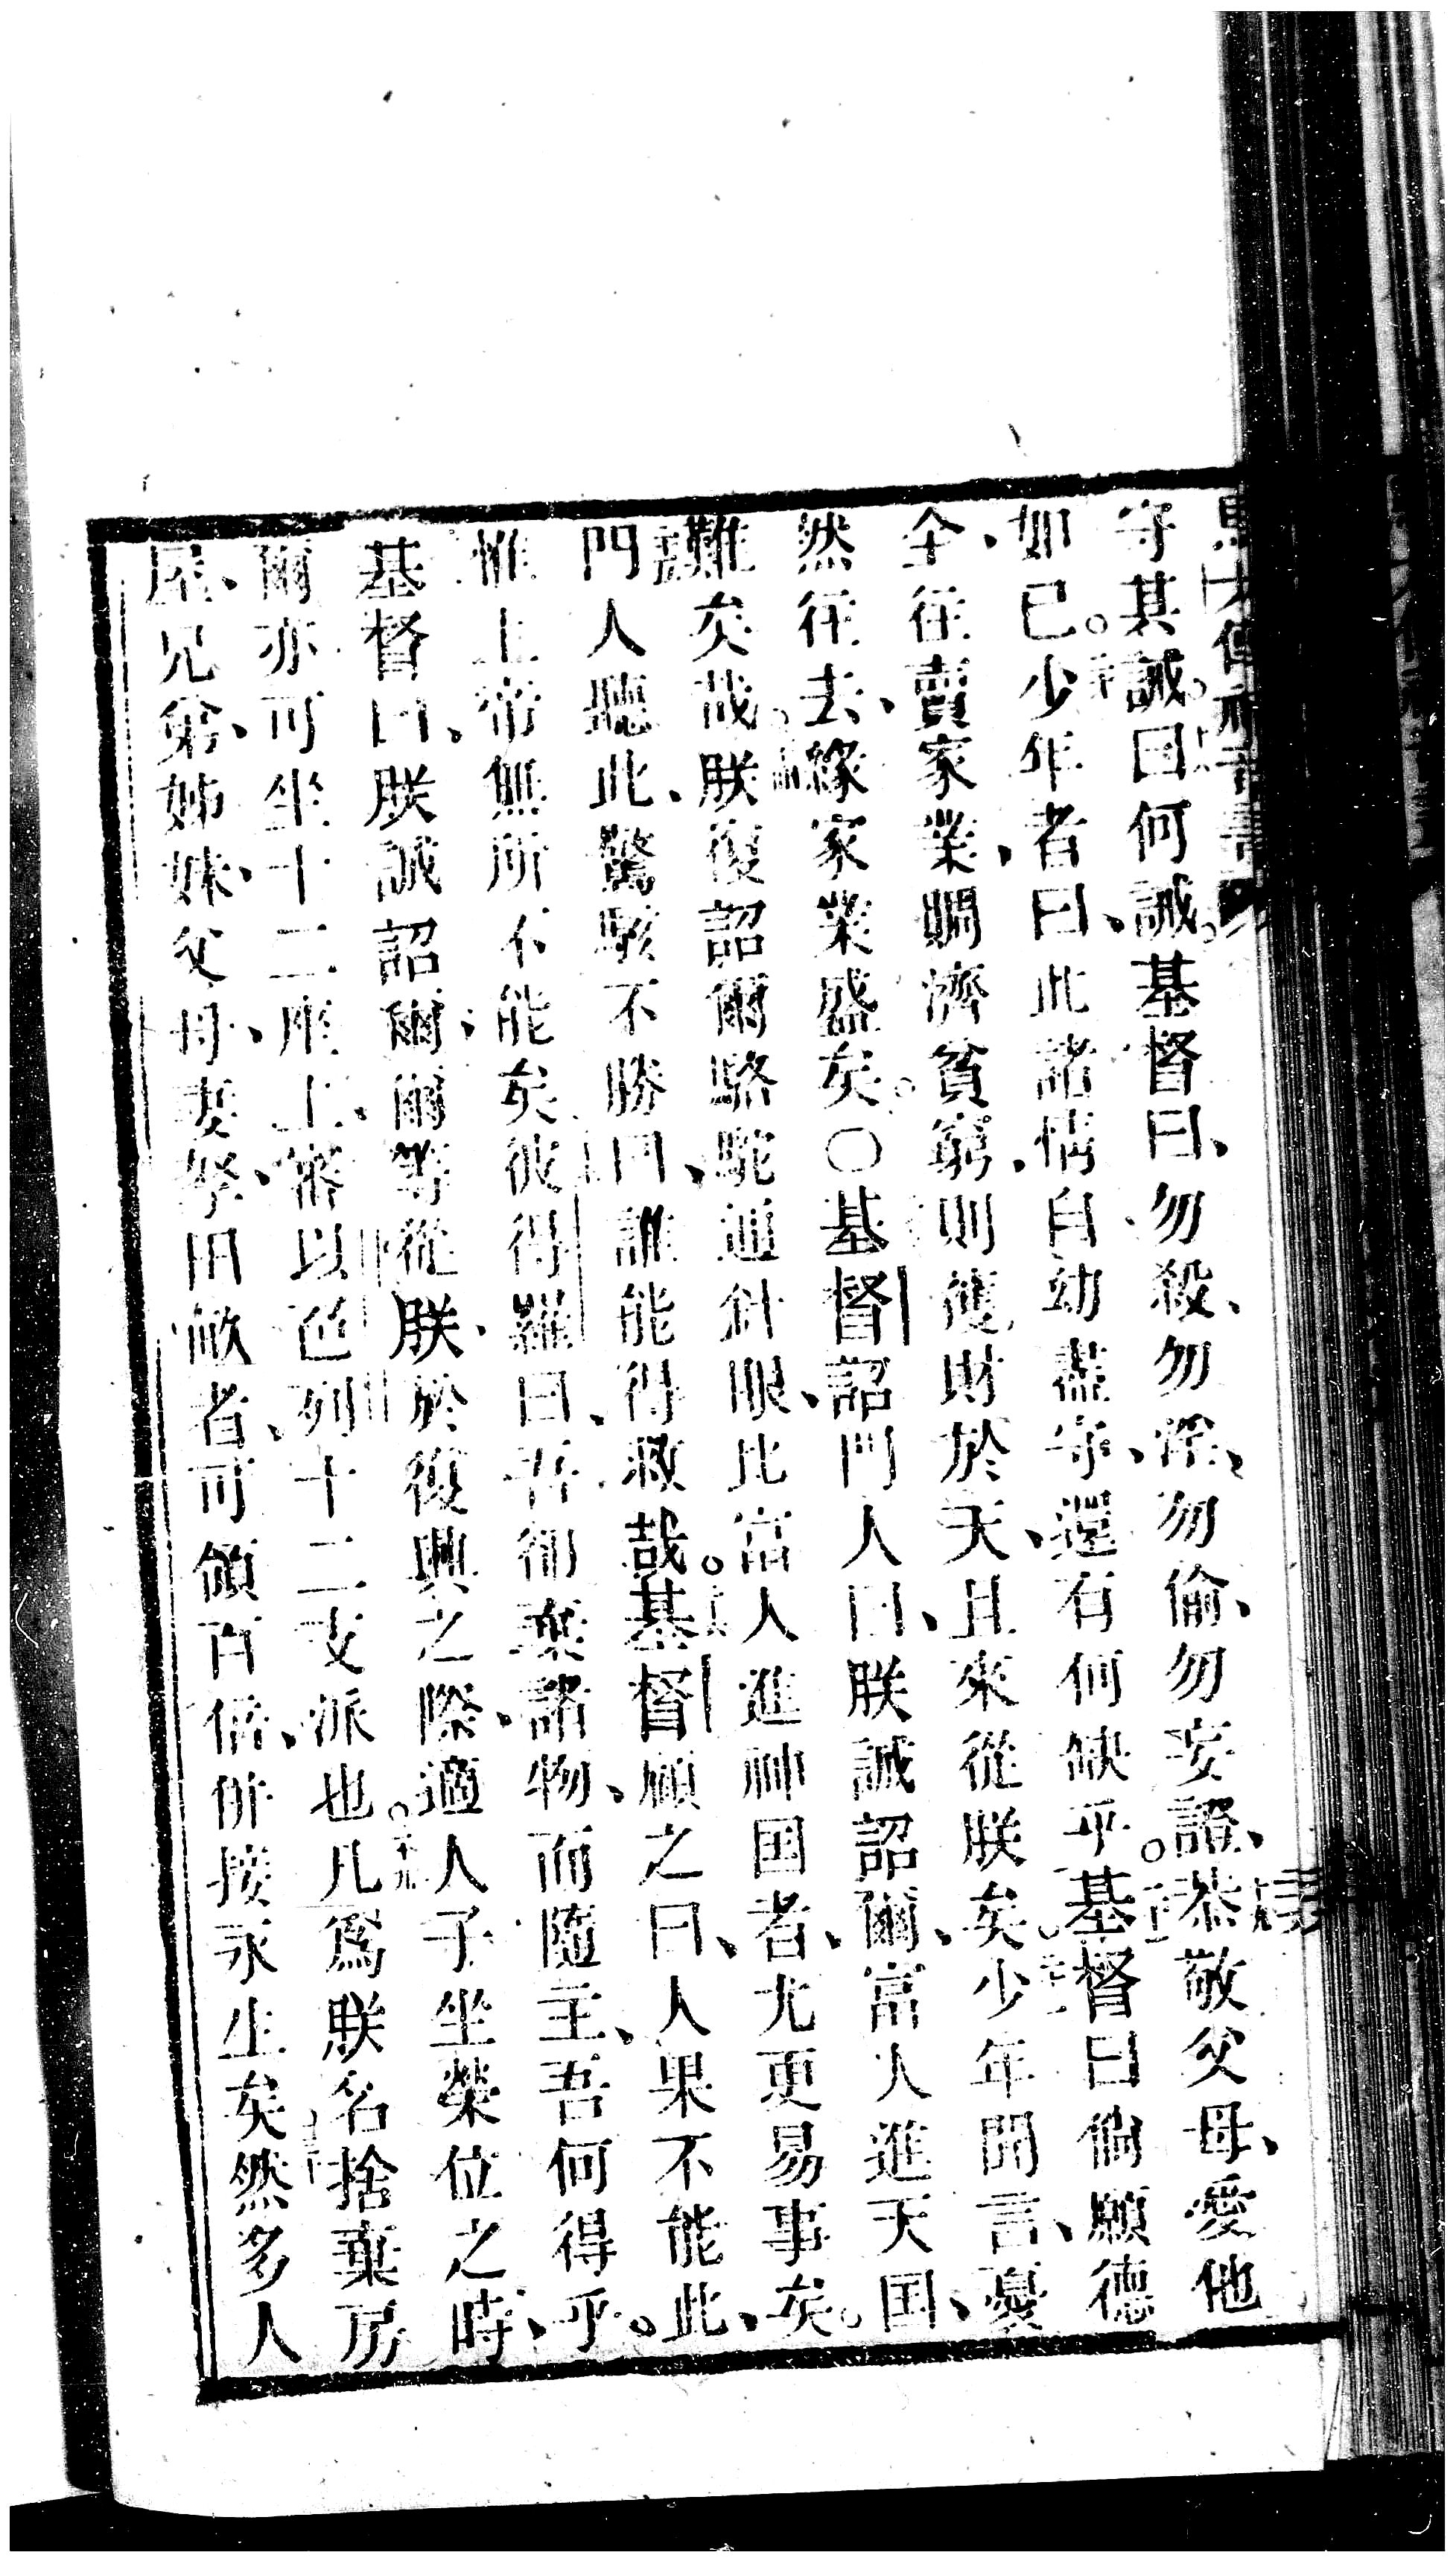 守其誡。曰何誡。基督曰、勿殺、勿淫、勿偷、勿妄證、恭敬父母、愛他
如己。少年者曰、此諸情自幼盡守、還有何缺乎。基督曰倘願德
全、往賣家業、賙濟貧窮、則獲財於天、且來從朕矣。少年聞言、憂
然往去、緣家業盛矣。○基督詔門人曰、朕誠詔爾、富人進天国、
難矣哉。朕復詔爾、駱駝通針眼、比富人進神国者、尤更易事矣。
門人聽此、驚駭不勝曰、誰能得救哉。基督顧之曰、人果不能此、
惟上帝無所不能矣。彼得羅曰、吾彻棄諸物、而隨主、吾何得乎。
基督曰、朕誠詔爾、爾等從朕、於復興之際、適人子坐榮位之時、
爾亦可坐十二座上、審以色列十二支派也。凡爲朕名捨棄房
屋、兄弟、姊妹、父母、妻孥、田畝者、可領百倍、併接永生矣。然多人